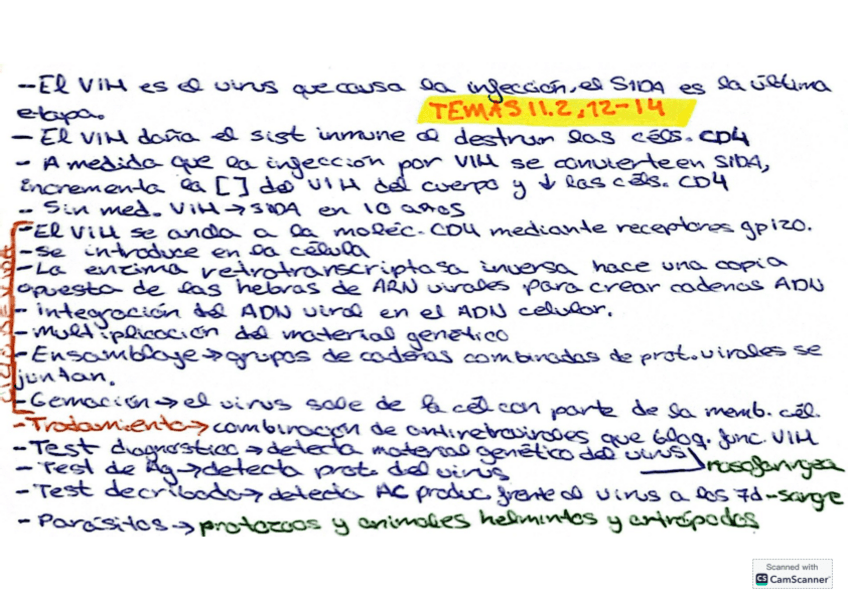 -El VIH es el virus que causa la infección, el SIDA es la última
etapa.
TEMAS 11.2, 12-14
- El VIH daña el sist inmune al destruir las céls. CD4
- A medida que la infección por VIH se convierte en SIDA,
incrementa la [ ] de VIH del cuerpo y ↓ las céls. CD4
- Sin med. VIH → SIDA en 10 años
-El VIH se ancla a la moléc. CD4 mediante receptores gp120.
-Se introduce en la célula
-La enzima retrotranscriptasa inversa hace una copia
opuesta de las hebras de ARN virales para crear cadenas ADN
- integración del ADN viral en el ADN celular.
-Multiplicación del material genético
-Ensamblaje → grupos de cadenas combinadas de prot. virales se
juntan.
-Gemación → el virus sale de la cél con parte de la memb. cél.
-Tratamiento → combinación de antiretrovirales que bloq. func. VIH
-Test diagnostico → detecta material genético del virus
nasofaringea
- Test de Ag → detecta prot. del virus
-Test de cribado → detecta AC produc. frente al virus a los 7d -sangre
- Parásitos → protozoos y animales helmintos y artrópodos
Scanned with
CS CamScanner